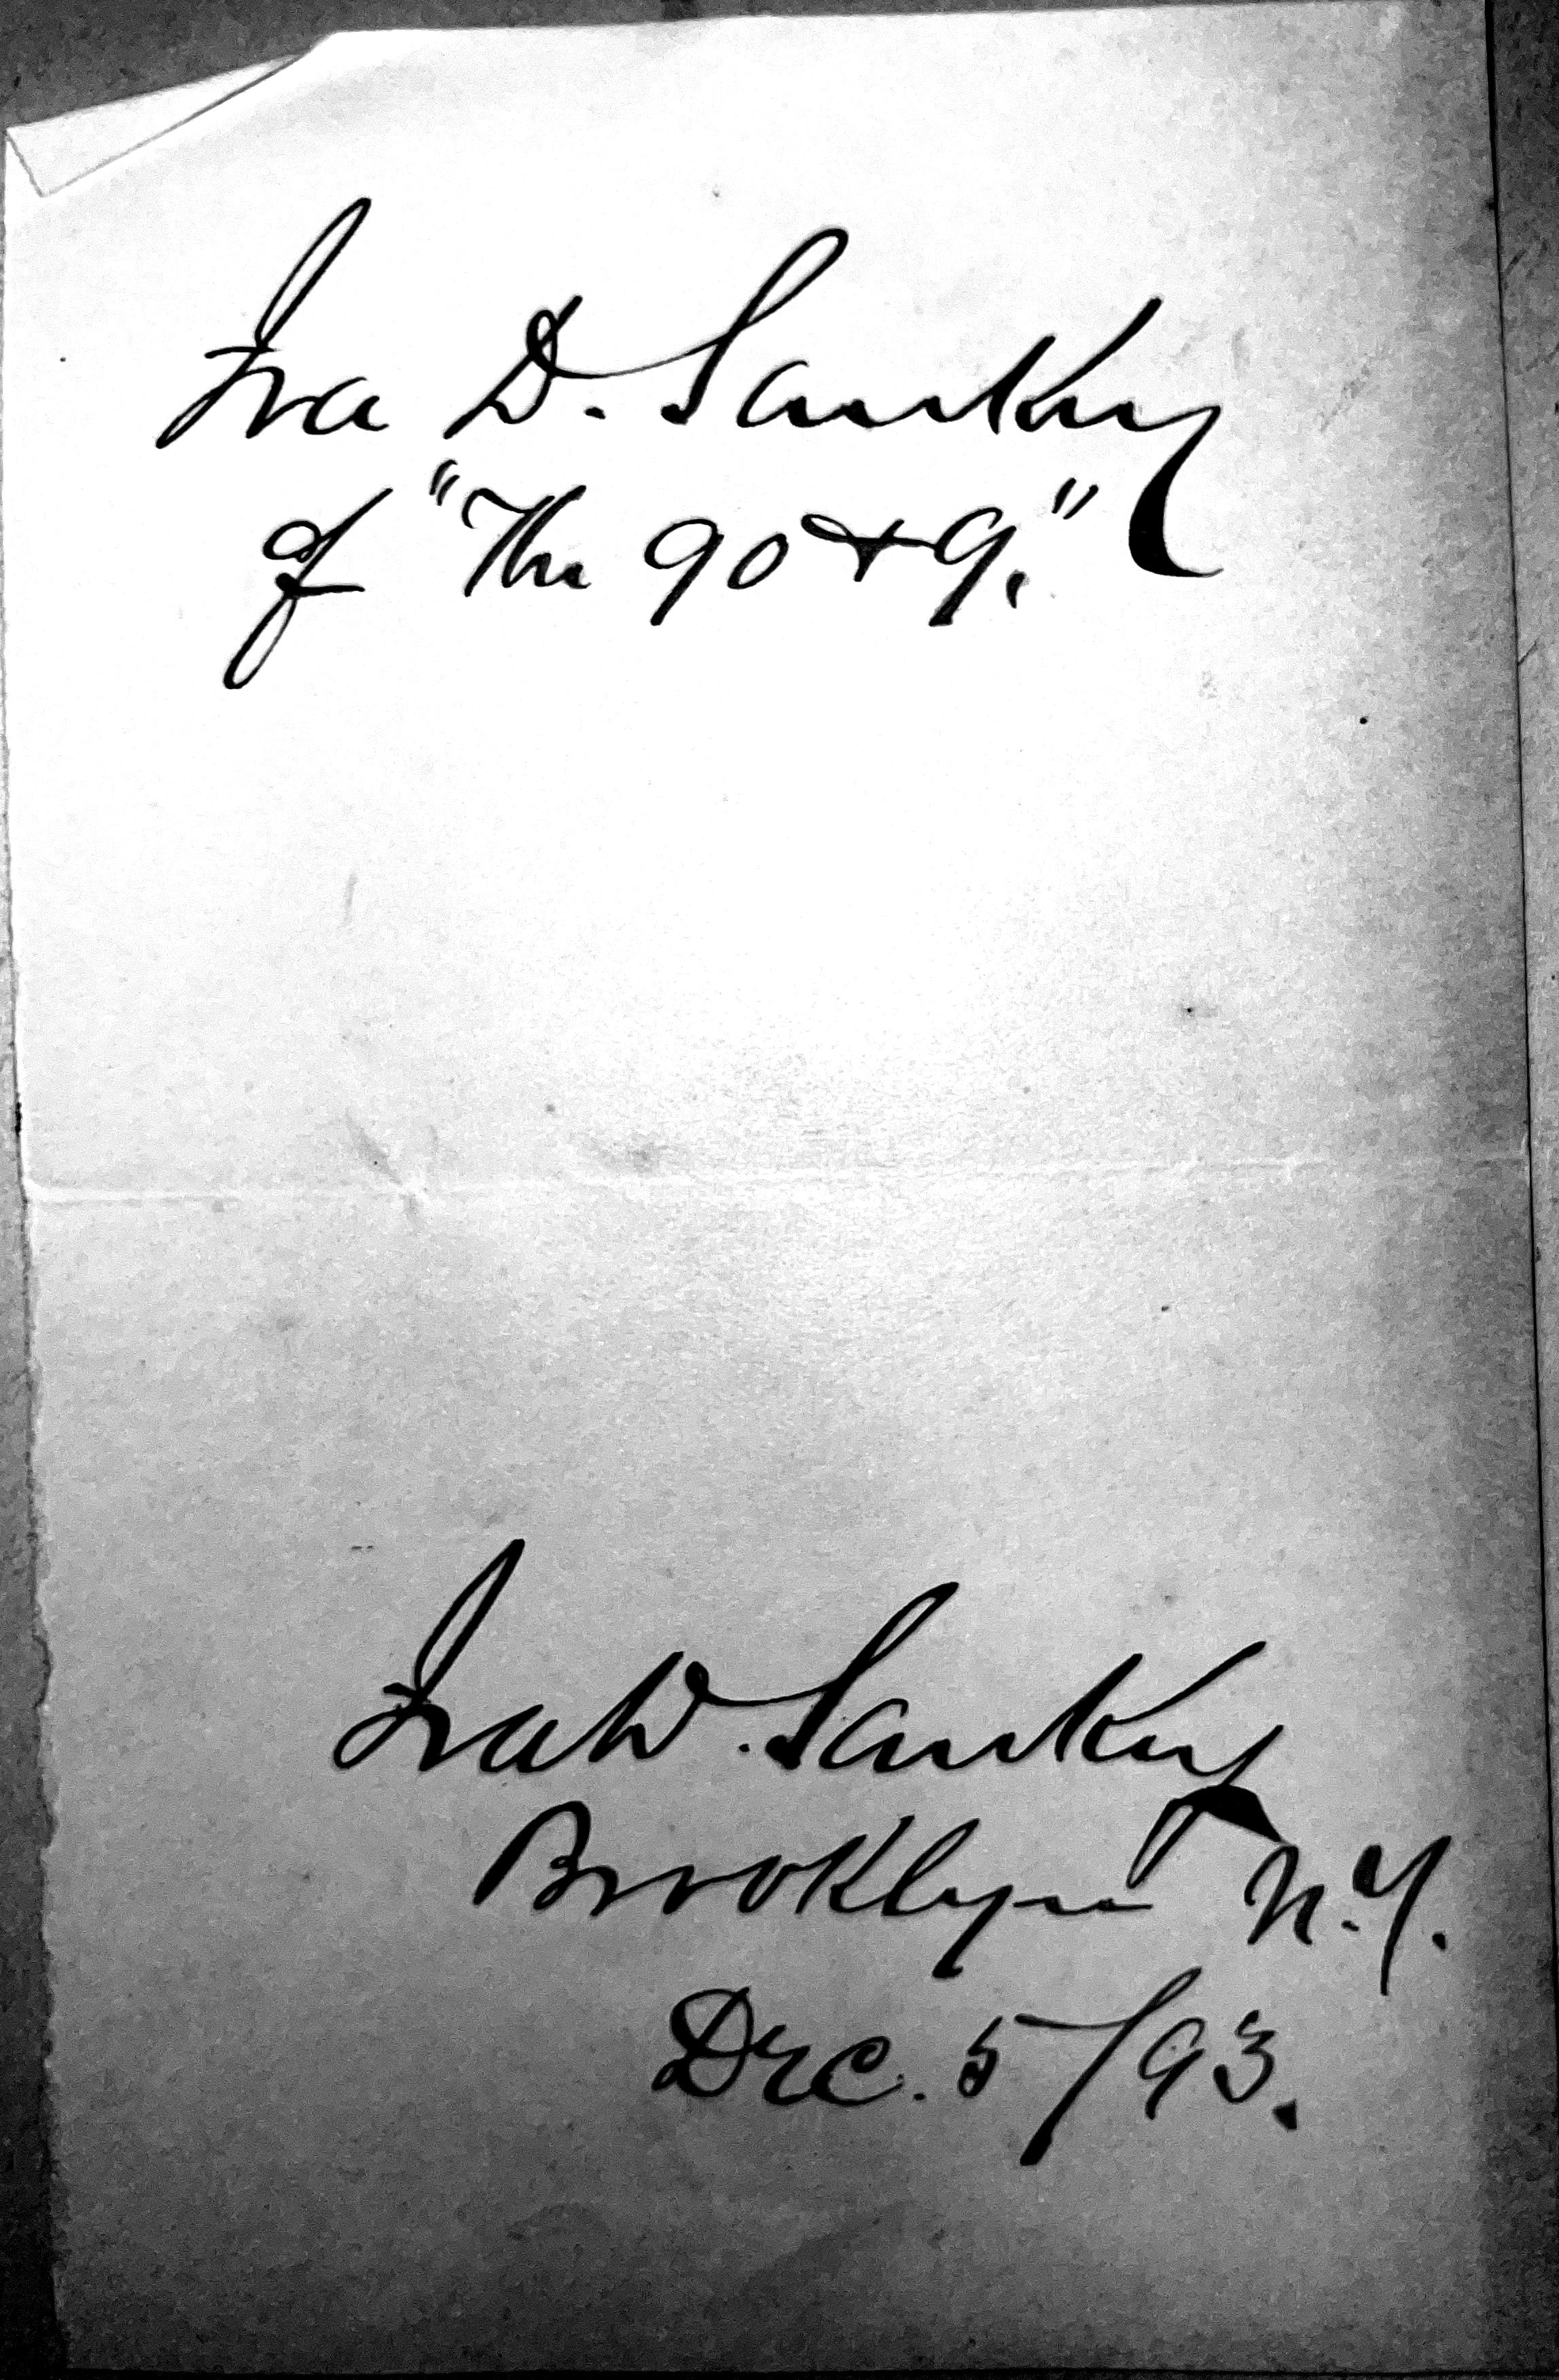 Ira D. Sankey
of "The 90 & 9."
Ira D. Sankey
Brooklyn N.Y.
Dec. 5/93.